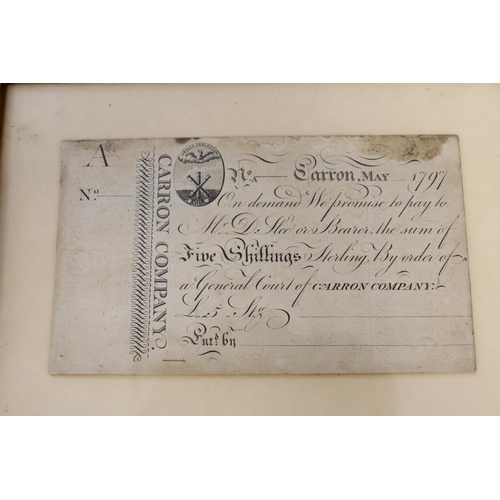 A
No.
CARRON COMPANY.
No. A Carron, MAY 1797
On demand We promise to pay to
Mr. D. Slee or Bearer, the sum of
Five Shillings Sterling, By order of
a General Court of CARRON COMPANY:
L. 5 Stg.
Entd. by